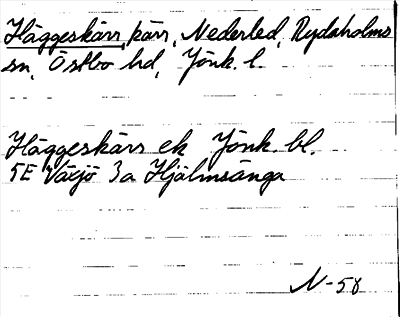 Häggeskärr, kärr, Nederled, Rydaholms
sn, Östbo hd, Jönk. l.
Häggeskärs ek Jönk. bl.
5E Växjö 3a Hjälmsänga
N-58